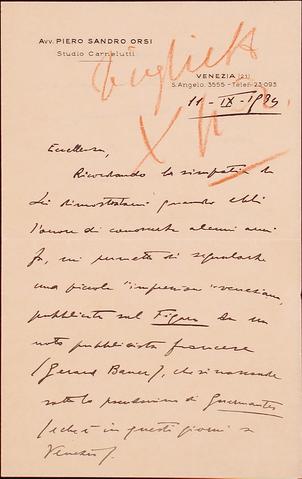 Avv. PIERO SANDRO ORSI
Studio Carnelutti
VENEZIA (21)
S. Angelo. 3555 - Telef. 23.093
11 - IX - 1934
Eccellenza,
Ricordando la simpatia da
Lei dimostratami quando ebbi
l'onore di conoscerla alcuni anni
fa, mi permetto di segnalarle
una piccola "impressione" veneziana,
pubblicata sul Figaro da un
noto pubblicista francese
(Gerard Bauer), che si nasconde
sotto lo pseudonimo di Guermantes
(ed è in questi giorni a
Venezia).